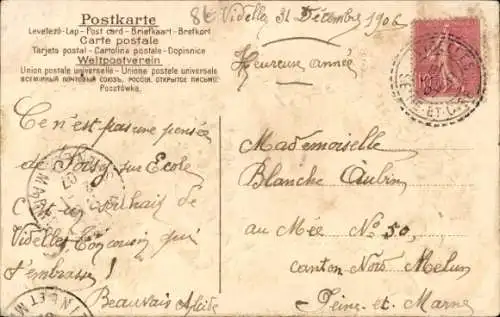 Postkarte
Levelező-Lap - Post card - Briefkaart - Brefkort
Carte postale
Tarjeta postal - Cartolina postale - Dopisnice
Weltpostverein
Union postale universelle - Unione postale universale
ВСЕМІРНЫЙ ПОЧТОВЫЙ СОЮЗЪ. РОССІЯ. ОТКРЫТОЕ ПИСЬМО.
Pocztówka.
Videlles 31 Décembre 1906
Heureuse année
Ce n'est pas une pensée
de Soisy sur Ecole
C'est un souhait de
Videlles qui
t'embrasse!
Beauvais
Mademoiselle
Blanche Aubin
au Mée No 50,
canton Nord Melun
Seine et Marne